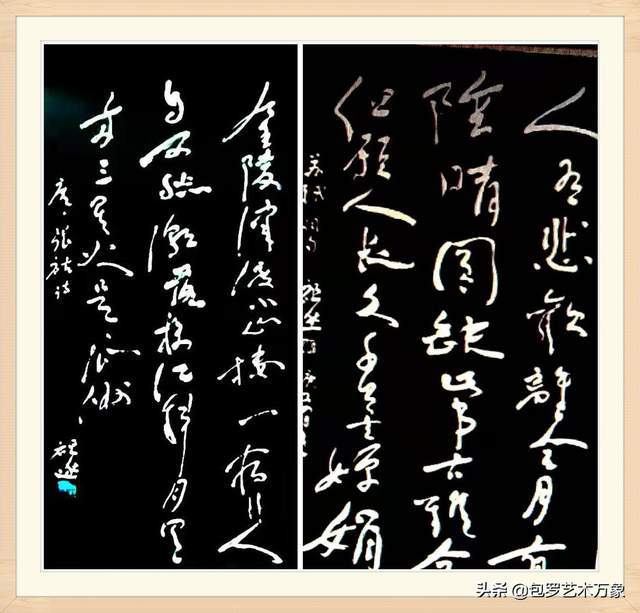 人有悲歡離合月有
陰晴圆缺此事古難全
但願人长久千里共嬋娟
苏轼词句
金陵津渡小山樓一宿行人
自可愁潮落夜江斜月里
两三星火是瓜洲
唐·张祜诗
头条 @包罗艺术万象